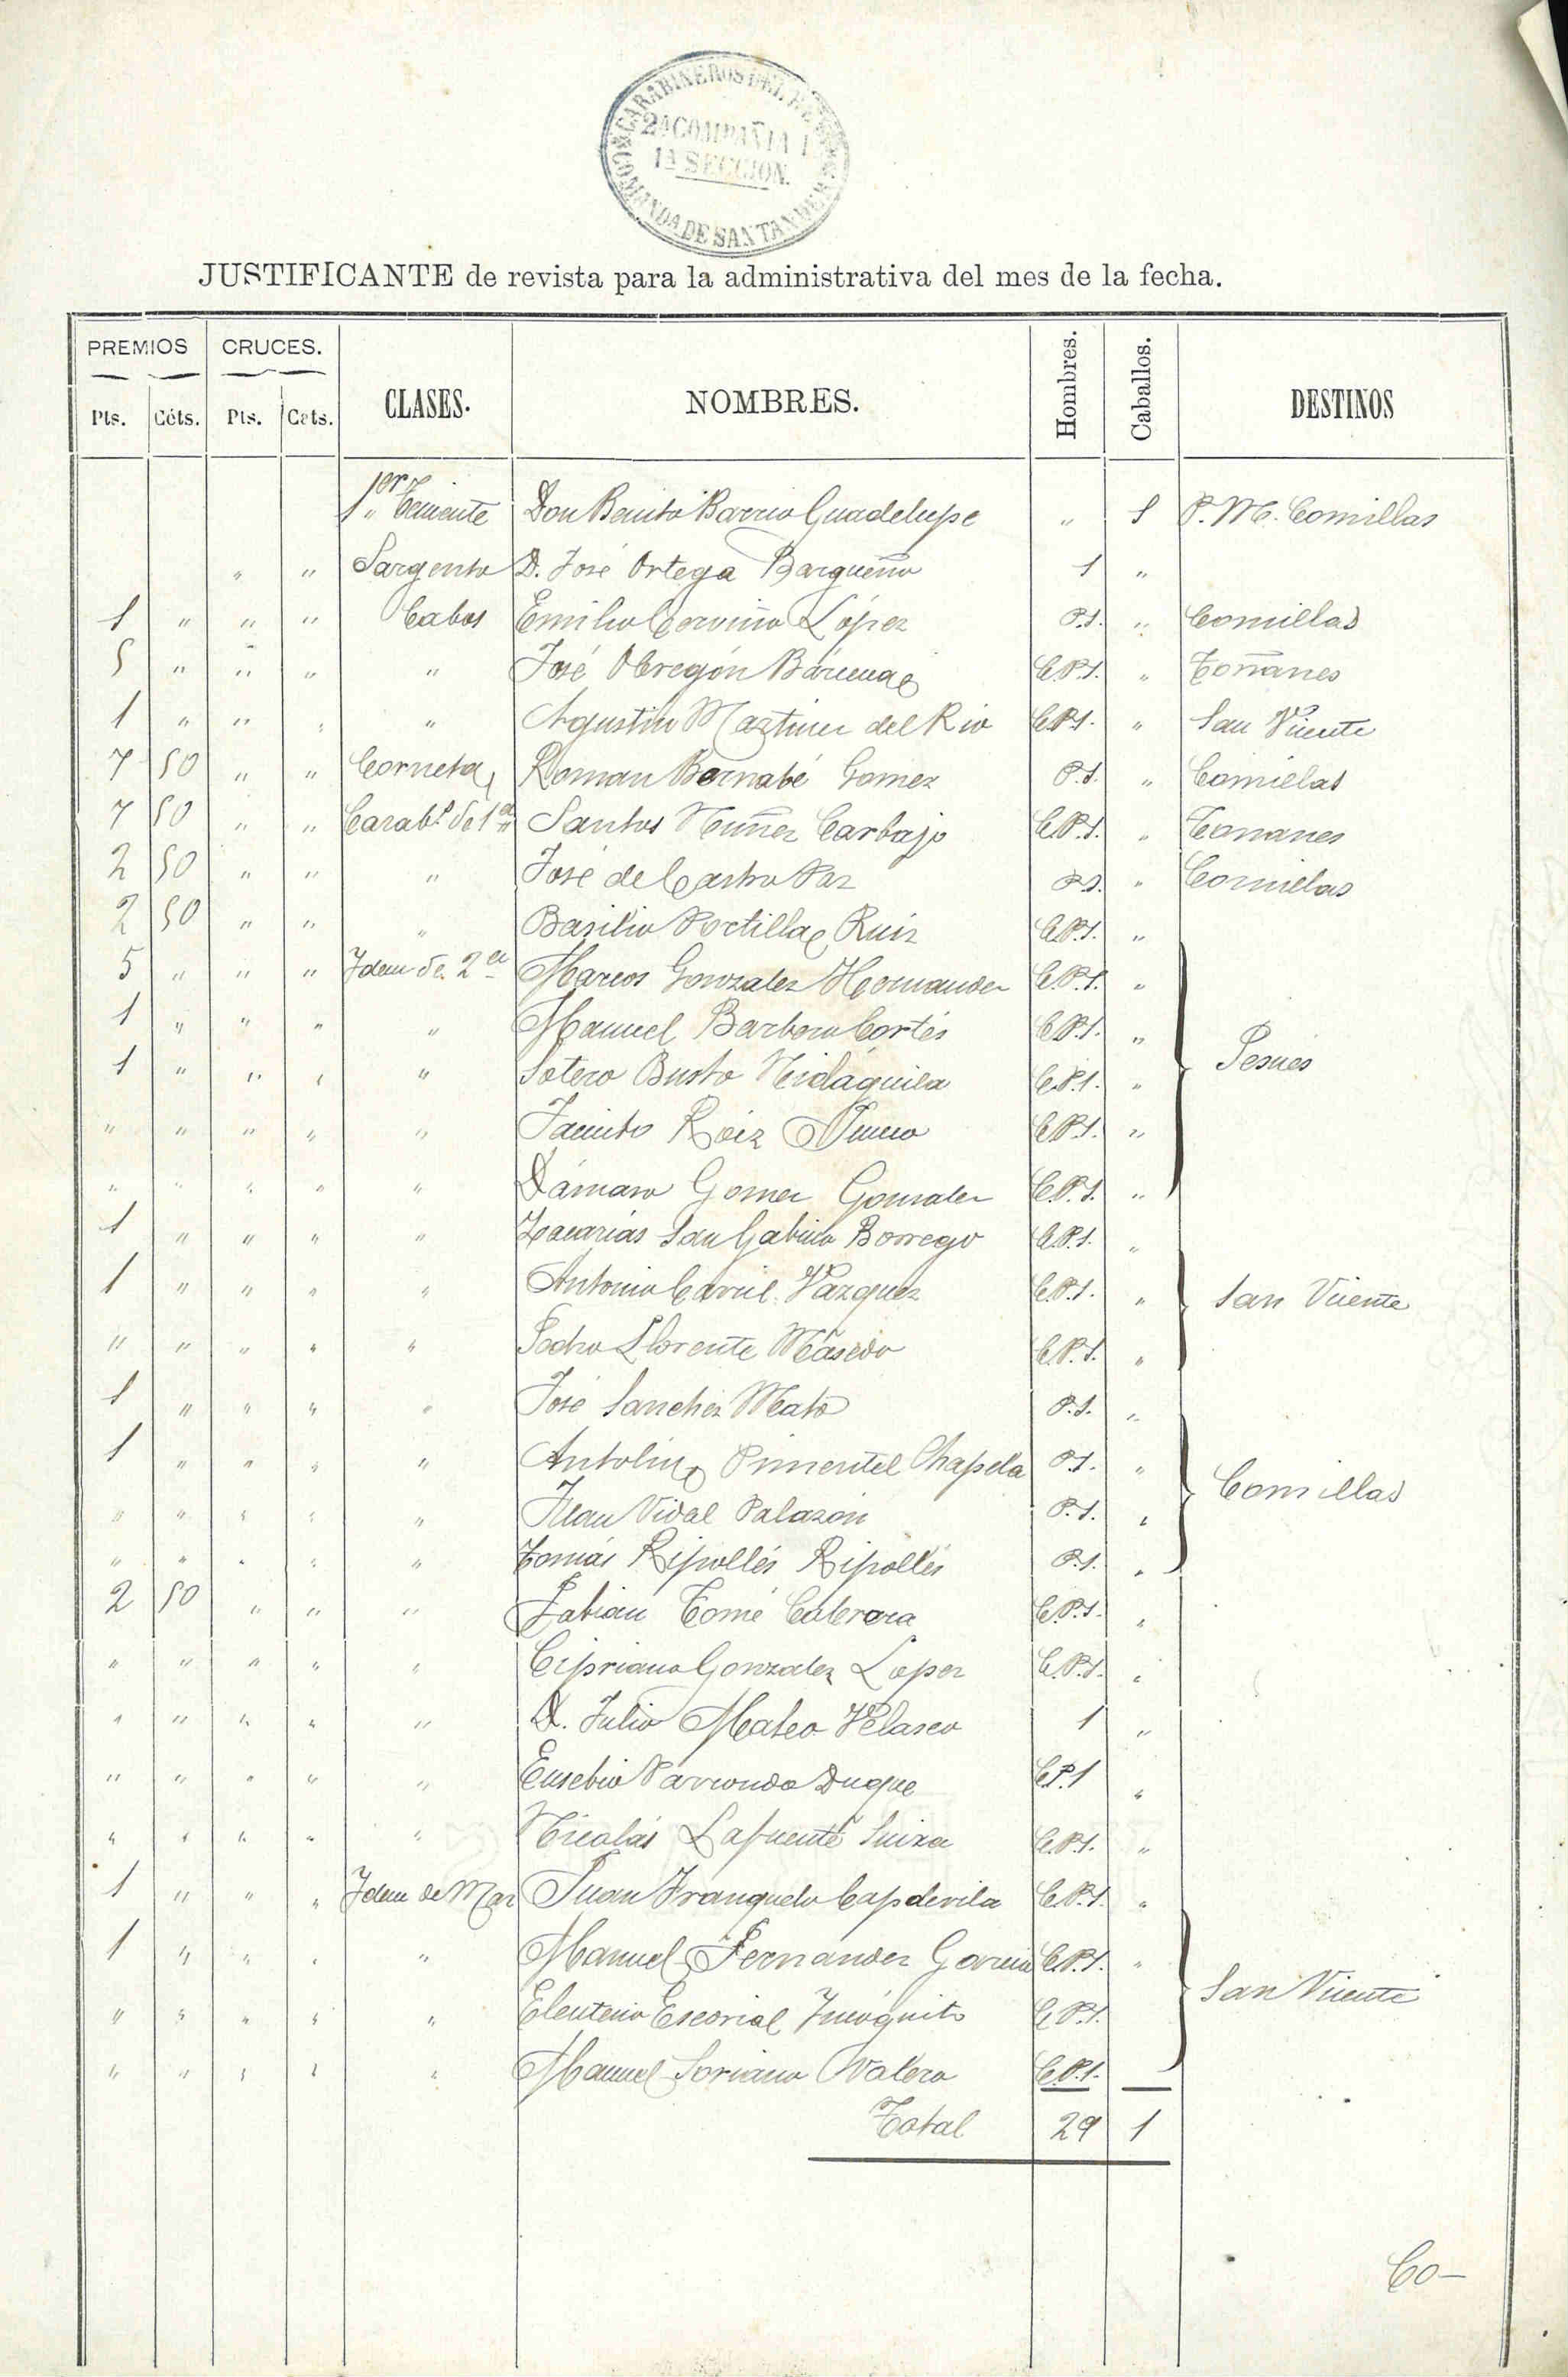 CARABINEROS DEL
2ª COMPAÑIA
1ª SECCION.
COMANDA DE SANTANDER
JUSTIFICANTE de revista para la administrativa del mes de la fecha.
PREMIOS CRUCES. CLASES. NOMBRES. Hombres. Caballos. DESTINOS
Pts. Céts. Pts. Cets.
1er Teniente Don Benito Barrio Guadelupe " 1 P. M. Comillas
" " Sargento D. José Ortega Bargueño 1 "
1 " " " Cabos Emilio Cerviño López P.1. " Comillas
5 " " " " José Obregón Bárcena C.P.1. " Toñanes
1 " " " " Agustin Martinez del Rio C.P.1. " San Vicente
7 50 " " Corneta Roman Bernabé Gomez P.1. " Comillas
7 50 " " Carabº de 1ª Santos Nuñez Carbajo C.P.1. " Toñanes
2 50 " " " José de Castro Paz P.1. " Comillas
2 50 " " " Basilio Portilla Ruiz C.P.1. "
5 " " " Idem de 2ª Marcos Gonzalez Hernandez C.P.1. "
1 " " " " Manuel Barbero Cortés C.P.1. " Pesués
1 " " " " Sotero Busto Nidáguila C.P.1. "
" " " " " Jacinto Roiz C.P.1. "
" " " " " Dámaso Gomez Gonzalez C.P.1. "
1 " " " " Zacarías San Gabino Borrego C.P.1. "
1 " " " " Antonio Carril Vazquez C.P.1. " San Vicente
" " " " " Pedro Llorente Masedo C.P.1. "
1 " " " " José Sanchez Mato P.1. "
1 " " " " Antolin Pimentel Chapela P.1. " Comillas
" " " " " Juan Vidal Palazón P.1. "
" " " " " Tomás Ripollés Ripollés P.1. "
2 50 " " " Fabian Tomé Cabrera C.P.1. "
" " " " " Cipriano Gonzalez Lopez C.P.1. "
" " " " " D. Julio Mateo Velasco 1 "
" " " " " Eusebio Parrondo Duque C.P.1 "
" " " " " Nicolás Lafuente Suiza C.P.1. "
1 " " " Idem de Mar Juan Franquelo Capdevila C.P.1. "
1 " " " " Manuel Fernandez Garcia C.P.1. " San Vicente
" " " " " Eleuterio Escorial Incógnito C.P.1.
" " " " " Manuel Soriano Valero C.P.1.
Total 29 1
Co-